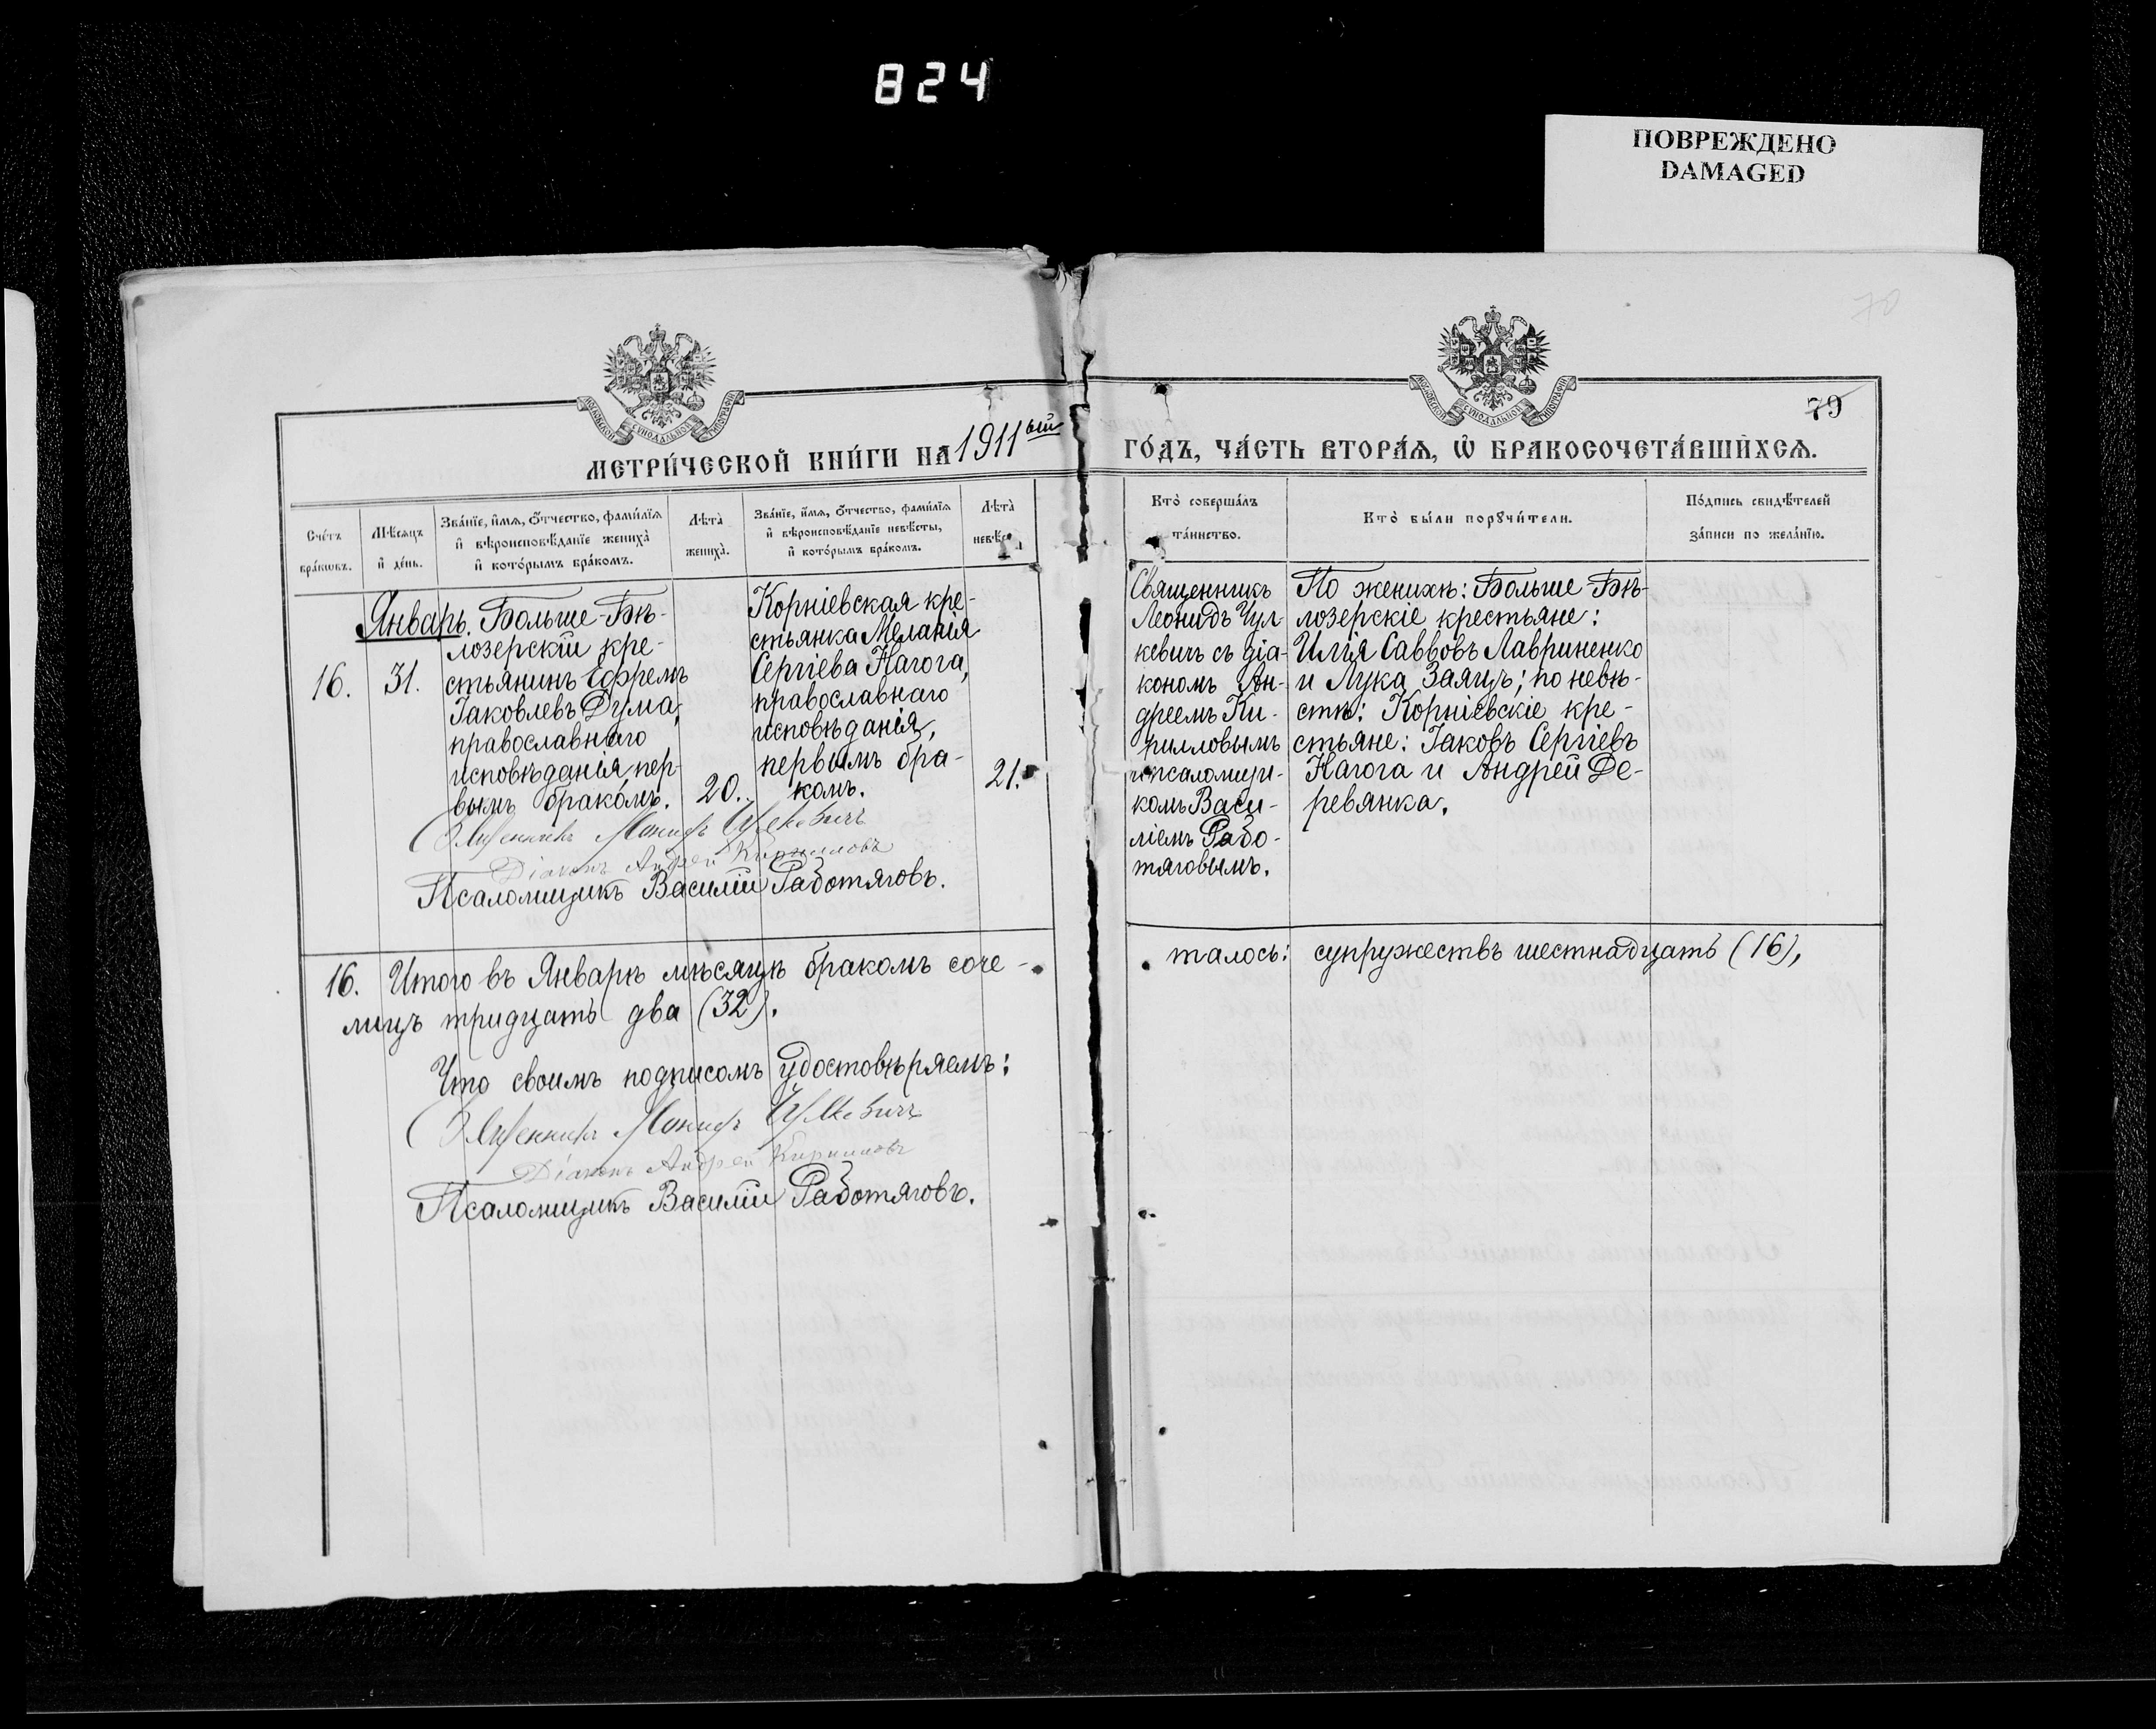 824
ПОВРЕЖДЕНО
DAMAGED
70
79
МОСКОВСКОЙ СѴНОДАЛЬНОЙ ТИПОГРАФІИ
МОСКОВСКОЙ СѴНОДАЛЬНОЙ ТИПОГРАФІИ
МЕТРИ́ЧЕСКОЙ КНИ́ГИ НА 1911ый
ГО́ДЪ, ЧА́СТЬ ВТОРА́Ѧ, Ѡ҆ БРАКОСОЧЕТА́ВШИХСѦ.
Сче́тъ
бра́кѡвъ.
Мѣ́сѧцъ
и҆ де́нь.
Зва́нїе, и҆́мѧ, ѻ҆́тчество, фами́лїѧ
и҆ вѣроисповѣ́данїе жениха̀
и҆ кото́рымъ бра́комъ.
Лѣ́та̀
жениха̀.
Зва́нїе, и҆́мѧ, ѻ҆́тчество, фами́лїѧ
и҆ вѣроисповѣ́данїе невѣ́сты,
и҆ кото́рымъ бра́комъ.
Лѣ́та̀
невѣ́с
Кто̀ соверша́лъ
та́инство.
Кто̀ бы́ли порꙋчи́тели.
По́дпись свидѣ́телей
за́писи по жела́нїю.
Январь.
16.
31.
Больше-Бѣ-
лозерскій кре-
стьянинъ Ефремъ
Іаковлевъ Дума,
православнаго
исповѣданія, пер-
вымъ бракомъ.
20.
Корніевская кре-
стьянка Меланія
Сергіева Нагога,
православнаго
исповѣданія,
первымъ бра-
комъ.
21.
Священникъ
Леонидъ Чул-
кевичъ съ діа-
кономъ Ан-
дреемъ Ки-
рилловымъ
и псаломщи-
комъ Васи-
ліемъ Рабо-
тяговымъ.
По женихѣ: Больше-Бѣ-
лозерскіе крестьяне:
Илія Саввовъ Лавриненко
и Лука Заяцъ; по невѣ-
стѣ: Корніевскіе кре-
стьяне: Іаковъ Сергіевъ
Нагога и Андрей Де-
ревянка.
Священникъ Леонидъ Чулкевичъ
Діаконъ Андрей Кирилловъ
Псаломщикъ Василій Работяговъ.
16. Итого въ Январѣ мѣсяцѣ бракомъ соче-
талось: супружествъ шестнадцать (16),
лицъ тридцать два (32).
Что своимъ подписомъ удостовѣряемъ:
Священникъ Леонидъ Чулкевичъ
Діаконъ Андрей Кирилловъ
Псаломщикъ Василій Работяговъ.